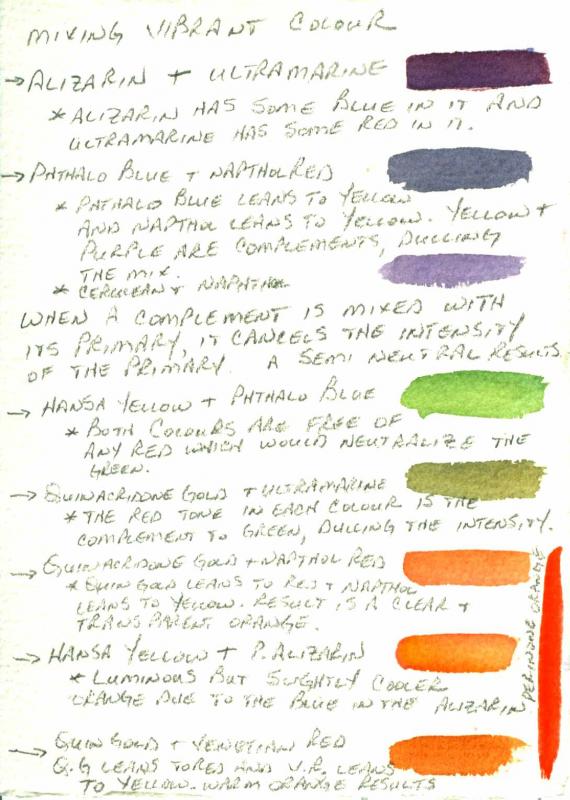 MIXING VIBRANT COLOUR
→ ALIZARIN + ULTRAMARINE
* ALIZARIN HAS SOME BLUE IN IT AND
ULTRAMARINE HAS SOME RED IN IT.
→ PHTHALO BLUE + NAPTHOL RED
* PHTHALO BLUE LEANS TO YELLOW
AND NAPTHOL LEANS TO YELLOW. YELLOW +
PURPLE ARE COMPLEMENTS, DULLING
THE MIX.
* CERULEAN + NAPHTHOL
WHEN A COMPLEMENT IS MIXED WITH
ITS PRIMARY, IT CANCELS THE INTENSITY
OF THE PRIMARY. A SEMI NEUTRAL RESULTS.
→ HANSA YELLOW + PHTHALO BLUE
* BOTH COLOURS ARE FREE OF
ANY RED WHICH WOULD NEUTRALIZE THE
GREEN.
→ QUINACRIDONE GOLD + ULTRAMARINE
* THE RED TONE IN EACH COLOUR IS THE
COMPLEMENT TO GREEN, DULLING THE INTENSITY.
→ QUINACRIDONE GOLD + NAPTHOL RED
* QUIN GOLD LEANS TO RED + NAPTHOL
LEANS TO YELLOW. RESULT IS A CLEAR +
TRANSPARENT ORANGE.
→ HANSA YELLOW + P. ALIZARIN
* LUMINOUS BUT SLIGHTLY COOLER
ORANGE DUE TO THE BLUE IN THE ALIZARIN
PERINONE ORANGE
→ QUIN GOLD + VENETIAN RED
Q.G LEANS TO RED AND V.R. LEANS
TO YELLOW. WARM ORANGE RESULTS